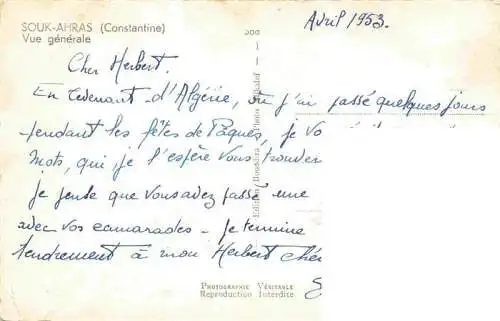 SOUK-AHRAS (Constantine)
Vue générale
Avril 1953.
Cher Herbert.
En revenant d'Algérie, où j'ai passé quelques jours
pendant les fêtes de Pâques, je vo
mots, qui je l'espère vous trouver
je pense que vous avez passé une
avec vos camarades - je termine
tendrement à mon Herbert chér
PHOTOGRAPHIE VÉRITABLE
Reproduction Interdite